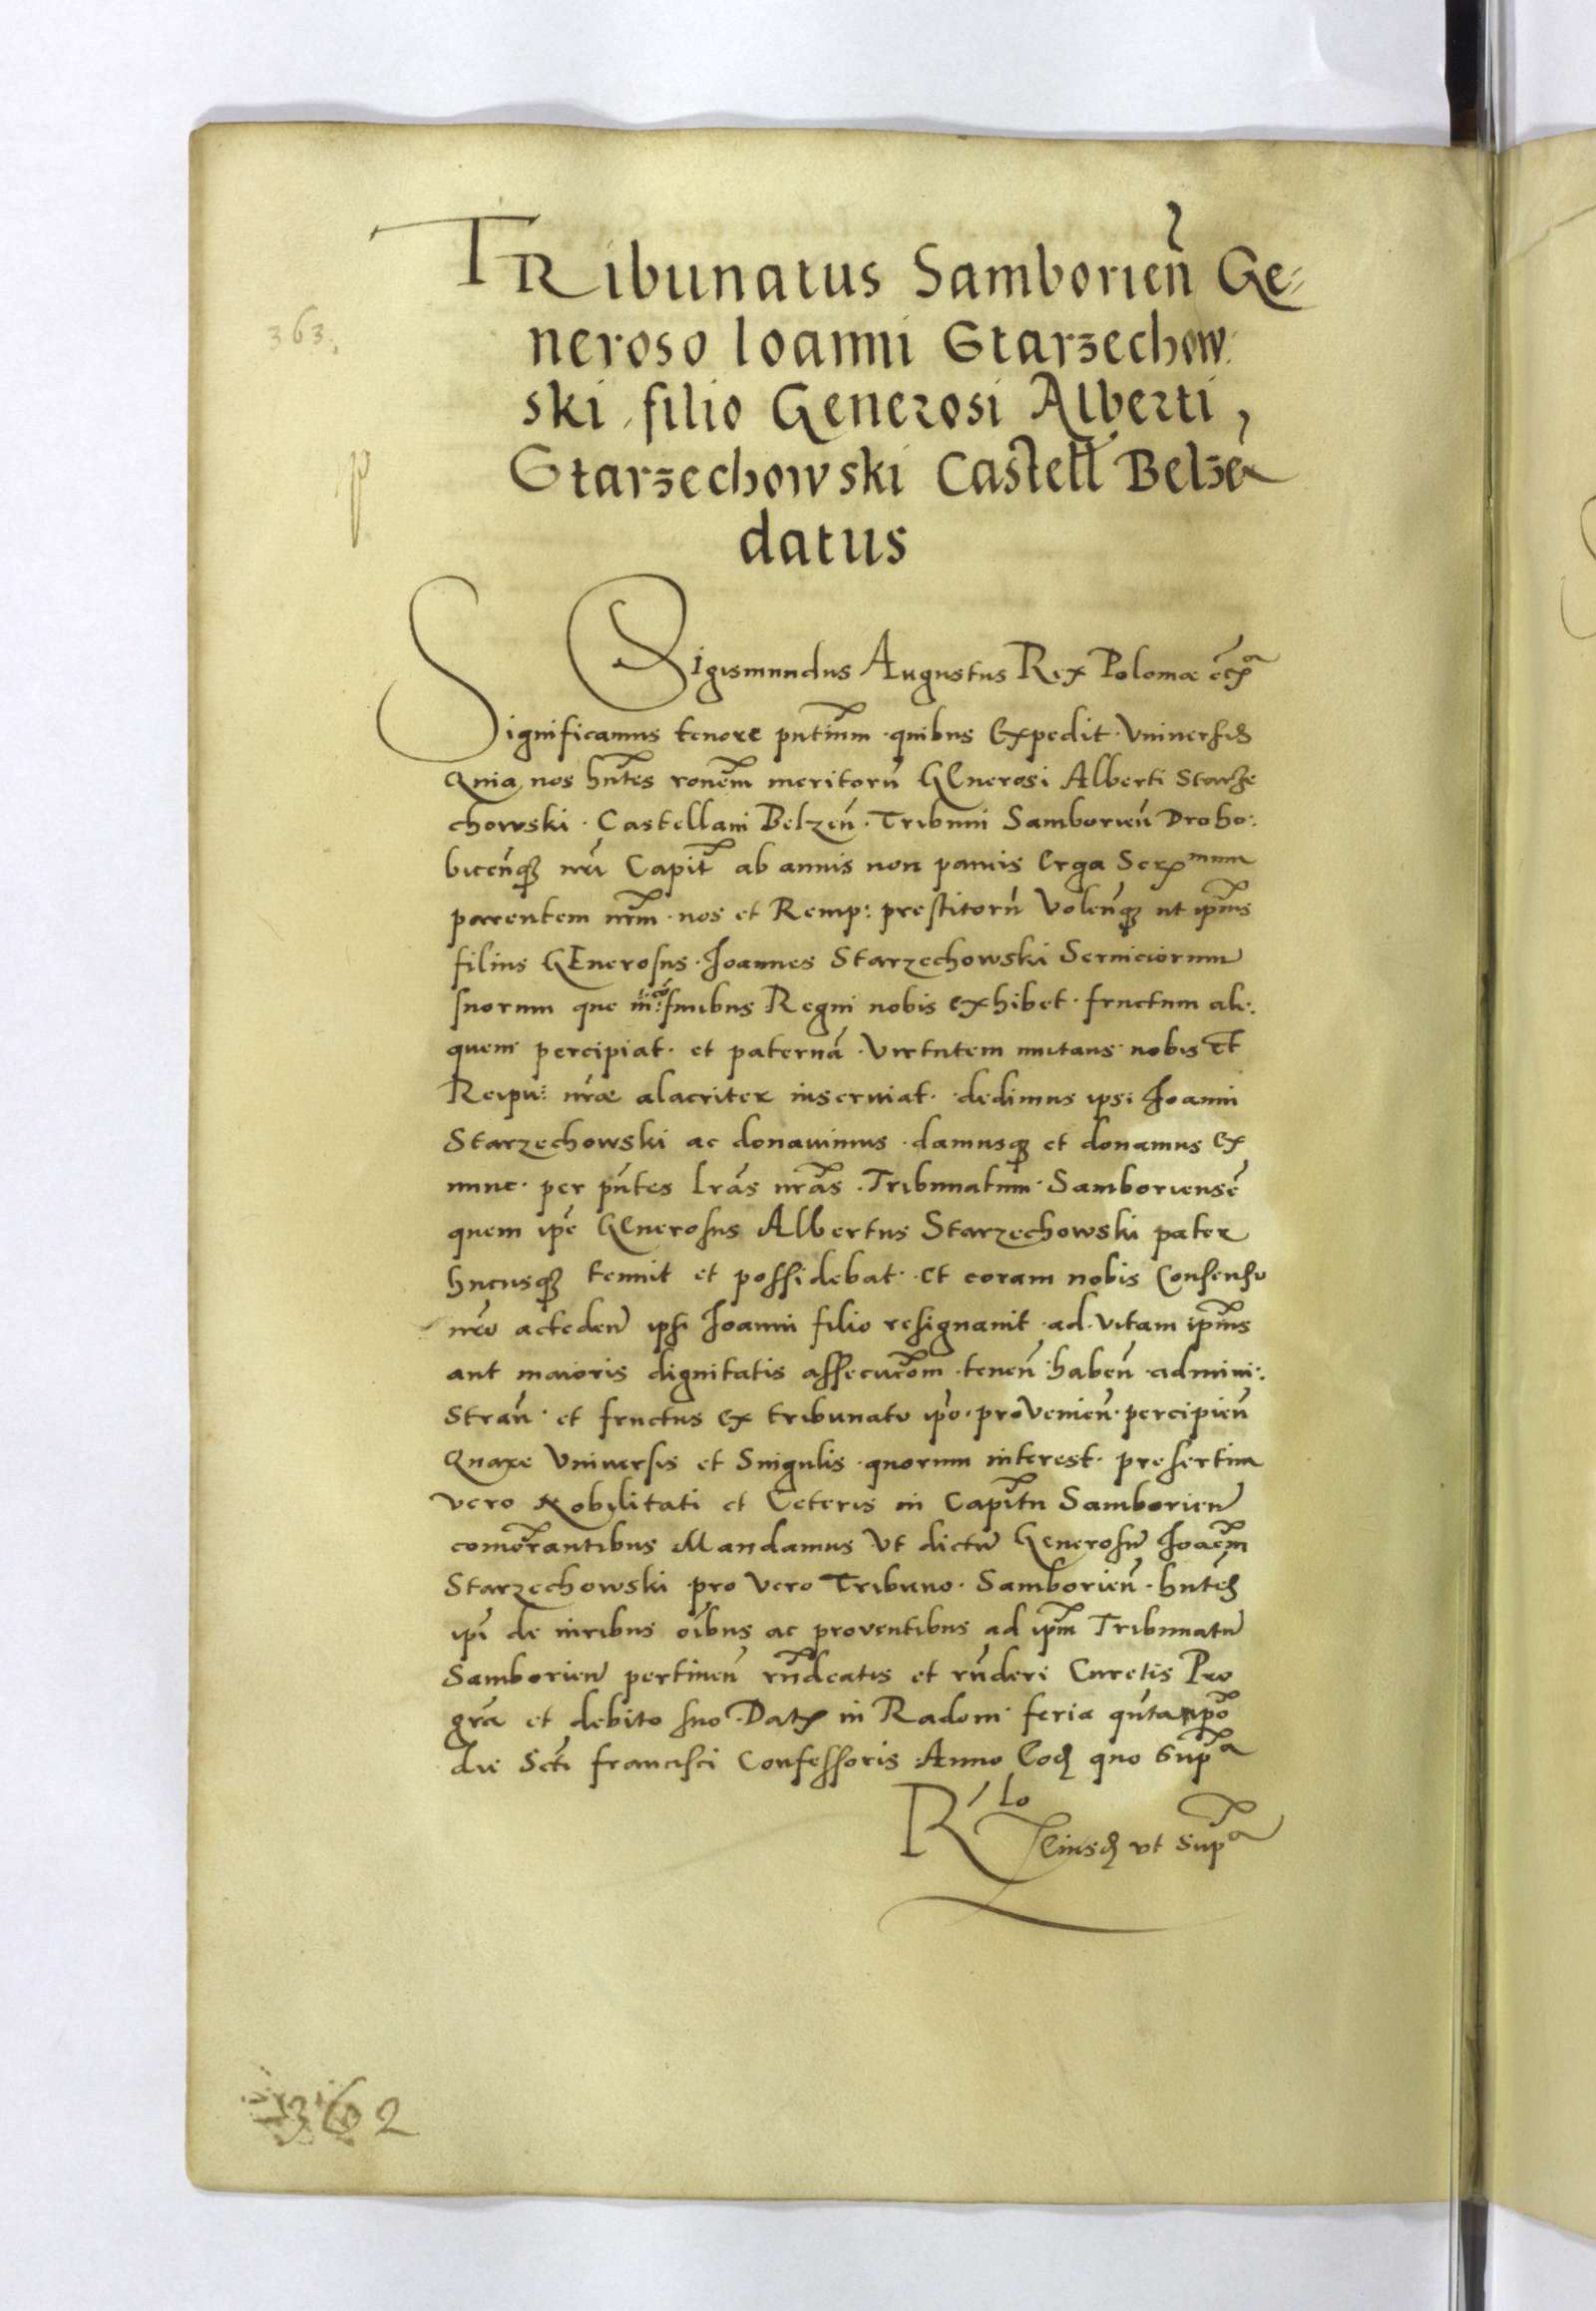 TRibunatus Samborien̄ Ge⸗
363.
neroso Ioanni Starzechow:
ski, filio Generosi Alberti,
Starzechowski Castell Belzen̄
p
datus
Sigismundus Augustus Rex Poloniæ ec̄ᵃ
Significamus tenore pñtium quibus Expedit Vniuersis
Quia nos hñtes ronēm meritorū GEnerosi Alberti Starze
chowski. Castellani Belzen̄. Tribuni Samborien̄ Droho:
bicen̄qȝ nr̄i Capit̄ ab annis non paucis Erga Serᵐᵘᵐ
parentem nr̄m. nos et Remp: prestitorū Volen̄qȝ ut ip̄ius
filius GEnerosus. Joannes Starzechowski Seruiciorum
suorum que in: finibus Regni nobis exhibet. fructum ali:
quem percipiat. et paternā Virtutem imitans nobis Et
Reipu: nr̄æ alacriter inseruiat. dedimus ipsi Joanni
Starzechowski ac donauimus. damusqȝ et donamus Ex
nunc. per pñtes lr̄as nr̄as. Tribunatum. Samboriensē
quem ip̄e GEnerosus Albertus Starzechowski pater
hucusqȝ tenuit et possidebat. et coram nobis Consensu
nr̄o acceden̄ ipsi Joanni filio resignauit. ad vitam ip̄ius
aut maioris dignitatis assecucōm. tenen̄ haben̄ admini:
stran̄. et fructus Ex tribunatu ip̄o. proVenien̄. percipien̄
Quare Vniuersis et Singulis quorum interest. presertim
vero Nobilitati et Ceteris in Capit̄u Samborien̄
comōrantibus Mandamus Vt dictū Generosū Joaēm
Starzechowski pro Vero Tribuno. Samborien̄. hñtes
ip̄i de iuribus oībus ac proventibus ad ip̄m Tribunatū
Samborien̄ pertinen̄ rn̄deatis et rn̄deri Curetis Pro
gr̄a et debito suo. Datū in Radom. feria qūta ip̄o
die Scti francisci Confessoris. Anno Eodē quo Supᵃ
R'lo
Eiusdē vt Supᵃ
362